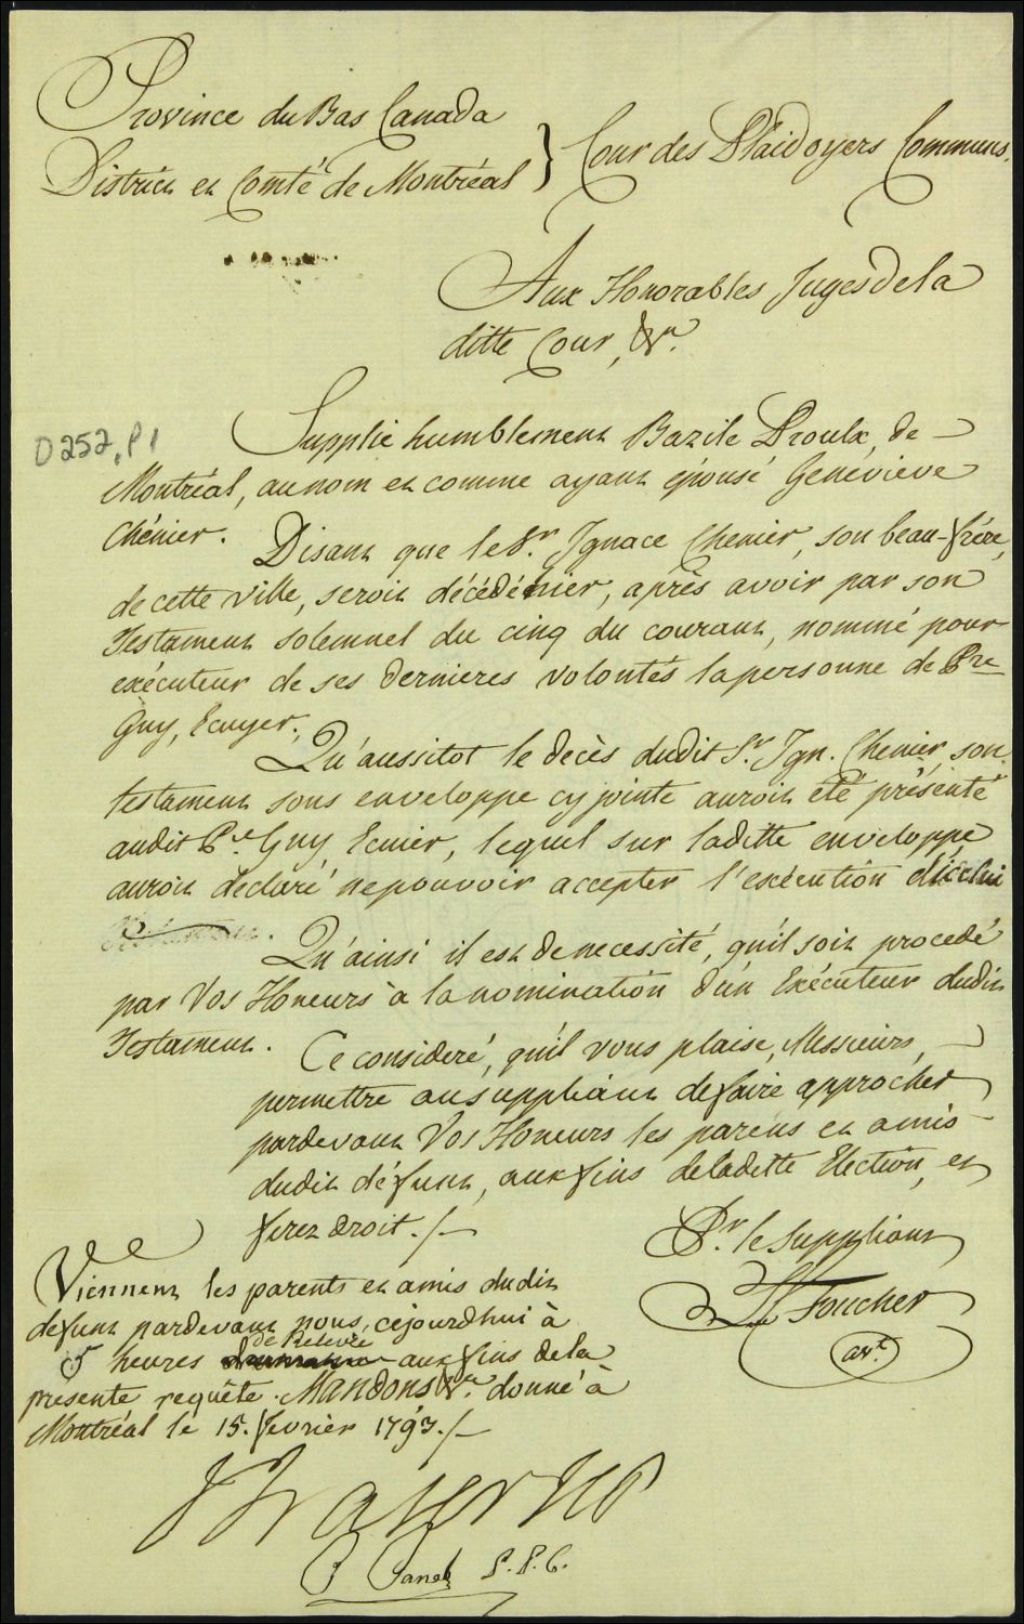 Province du Bas Canada
District et Comté de Montréal } Cour des Plaidoyers Communs.
Aux Honorables Juges de la
ditte Cour, &ca.
D252, P1
Supplie humblement Bazile Proulx, de
Montréal, au nom et comme ayant épousé Geneviève
Chénier. Disant que le Sr. Ignace Chenier, son beau-frère,
de cette ville, seroit décédé hier, après avoir par son
Testament solemnel du cinq du courant, nommé pour
exécuteur de ses dernieres volontés la personne de Pre
Guy, Ecuyer.,
Qu'aussitot le decès dudit Sr. Ign. Chenier, son
testament sous enveloppe cy jointe auroit été présenté
audit Pre. Guy Ecuier, lequel sur laditte enveloppe
auroit declaré ne pouvoir accepter l'exécution d'icelui
Qu'ainsi il est de necessité, qu'il soit procedé
par Vos Honeurs à la nomination d'un Exécuteur dudit
Testament. Ce consideré, qu'il vous plaise, Messieurs,
permettre au suppliant de faire approcher
pardevant Vos Honeurs les parens et amis
dudit défunt, aux fins de laditte Election, et
ferez droit ./-
Pr. le suppliant
Foucher
avt.
Viennent les parents et amis dudit
defunt pardevant nous, cejourdhui à
de Relevée
5 heures aux fins de la
presente requête. Mandons &ca donné à
Montréal le 15. fevrier 1793 ./-
P Panet P.P.C.